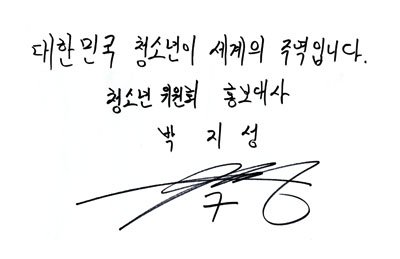 대한민국 청소년이 세계의 주역입니다.
청소년 위원회 홍보대사
박 지 성
7